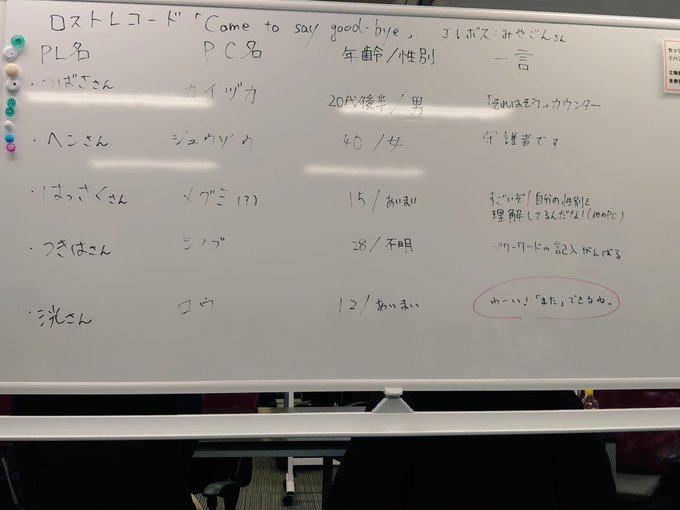 ロストレコード「Come to say good-bye」 エレボス:みやごんさん
PL名 PC名 年齢/性別 一言
・つばささん カイヅカ 20代後半/男 「それはそう」カウンター
・ヘンさん ジュウゾウ 40/女 守護者です
・はっさくさん メグミ(?) 15/あいまい すごいぞ!自分の性別を
理解してるんだな!(他のPC)
・つきはさん シノブ 28/不明 パワーワードの記入がんばる
・洸さん ロウ 12/あいまい わーい!「また」できるね。